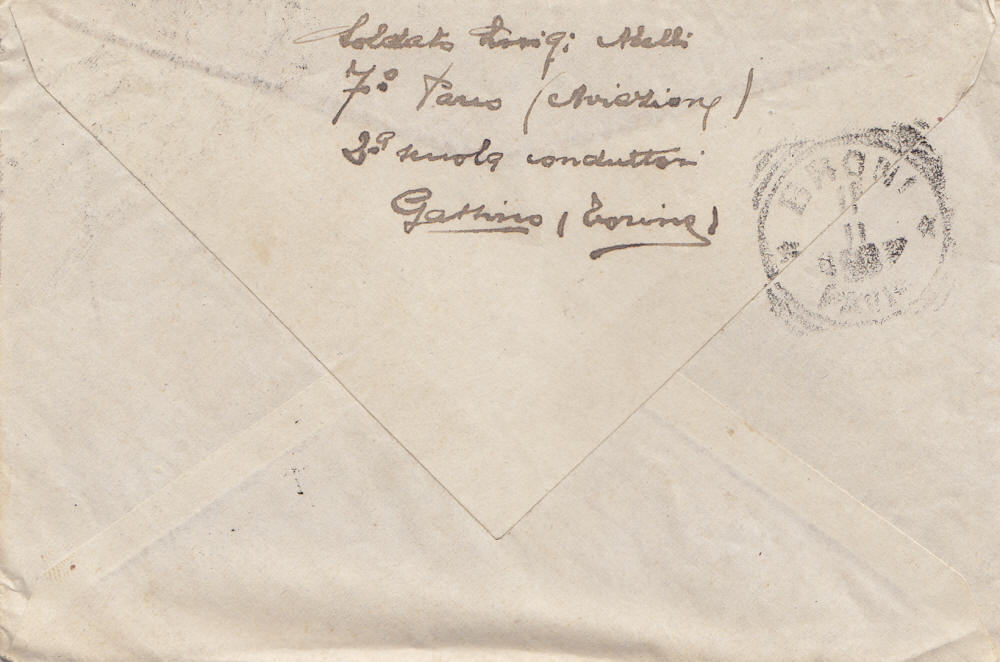 Soldato Luigi Melli
7º Parco (Aviazione)
2ª scuola conduttori
Gassino (Torino)
BRONI
11
PAVIA